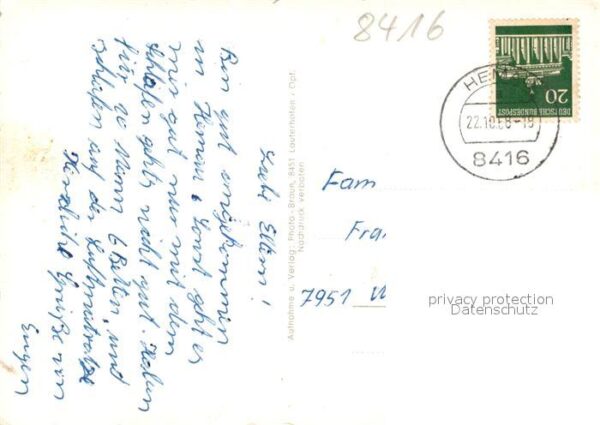 8416
DEUTSCHE BUNDESPOST
20
HE
22.10.68-18
8416
Liebe Eltern!
Bin gut angekommen
in Hemau, sonst geht es
mir gut nur mit dem
schlafen gehts nicht gut. Haben
für 10 Mann 6 Betten, und
schlafen auf der Luftmatratze
Herzliche Grüße von
Eugen
Aufnahme u. Verlag: Photo-Braun, 8451 Lauterhofen - Opf.
Nachdruck verboten
Fam
Fra
7951 W
privacy protection
Datenschutz